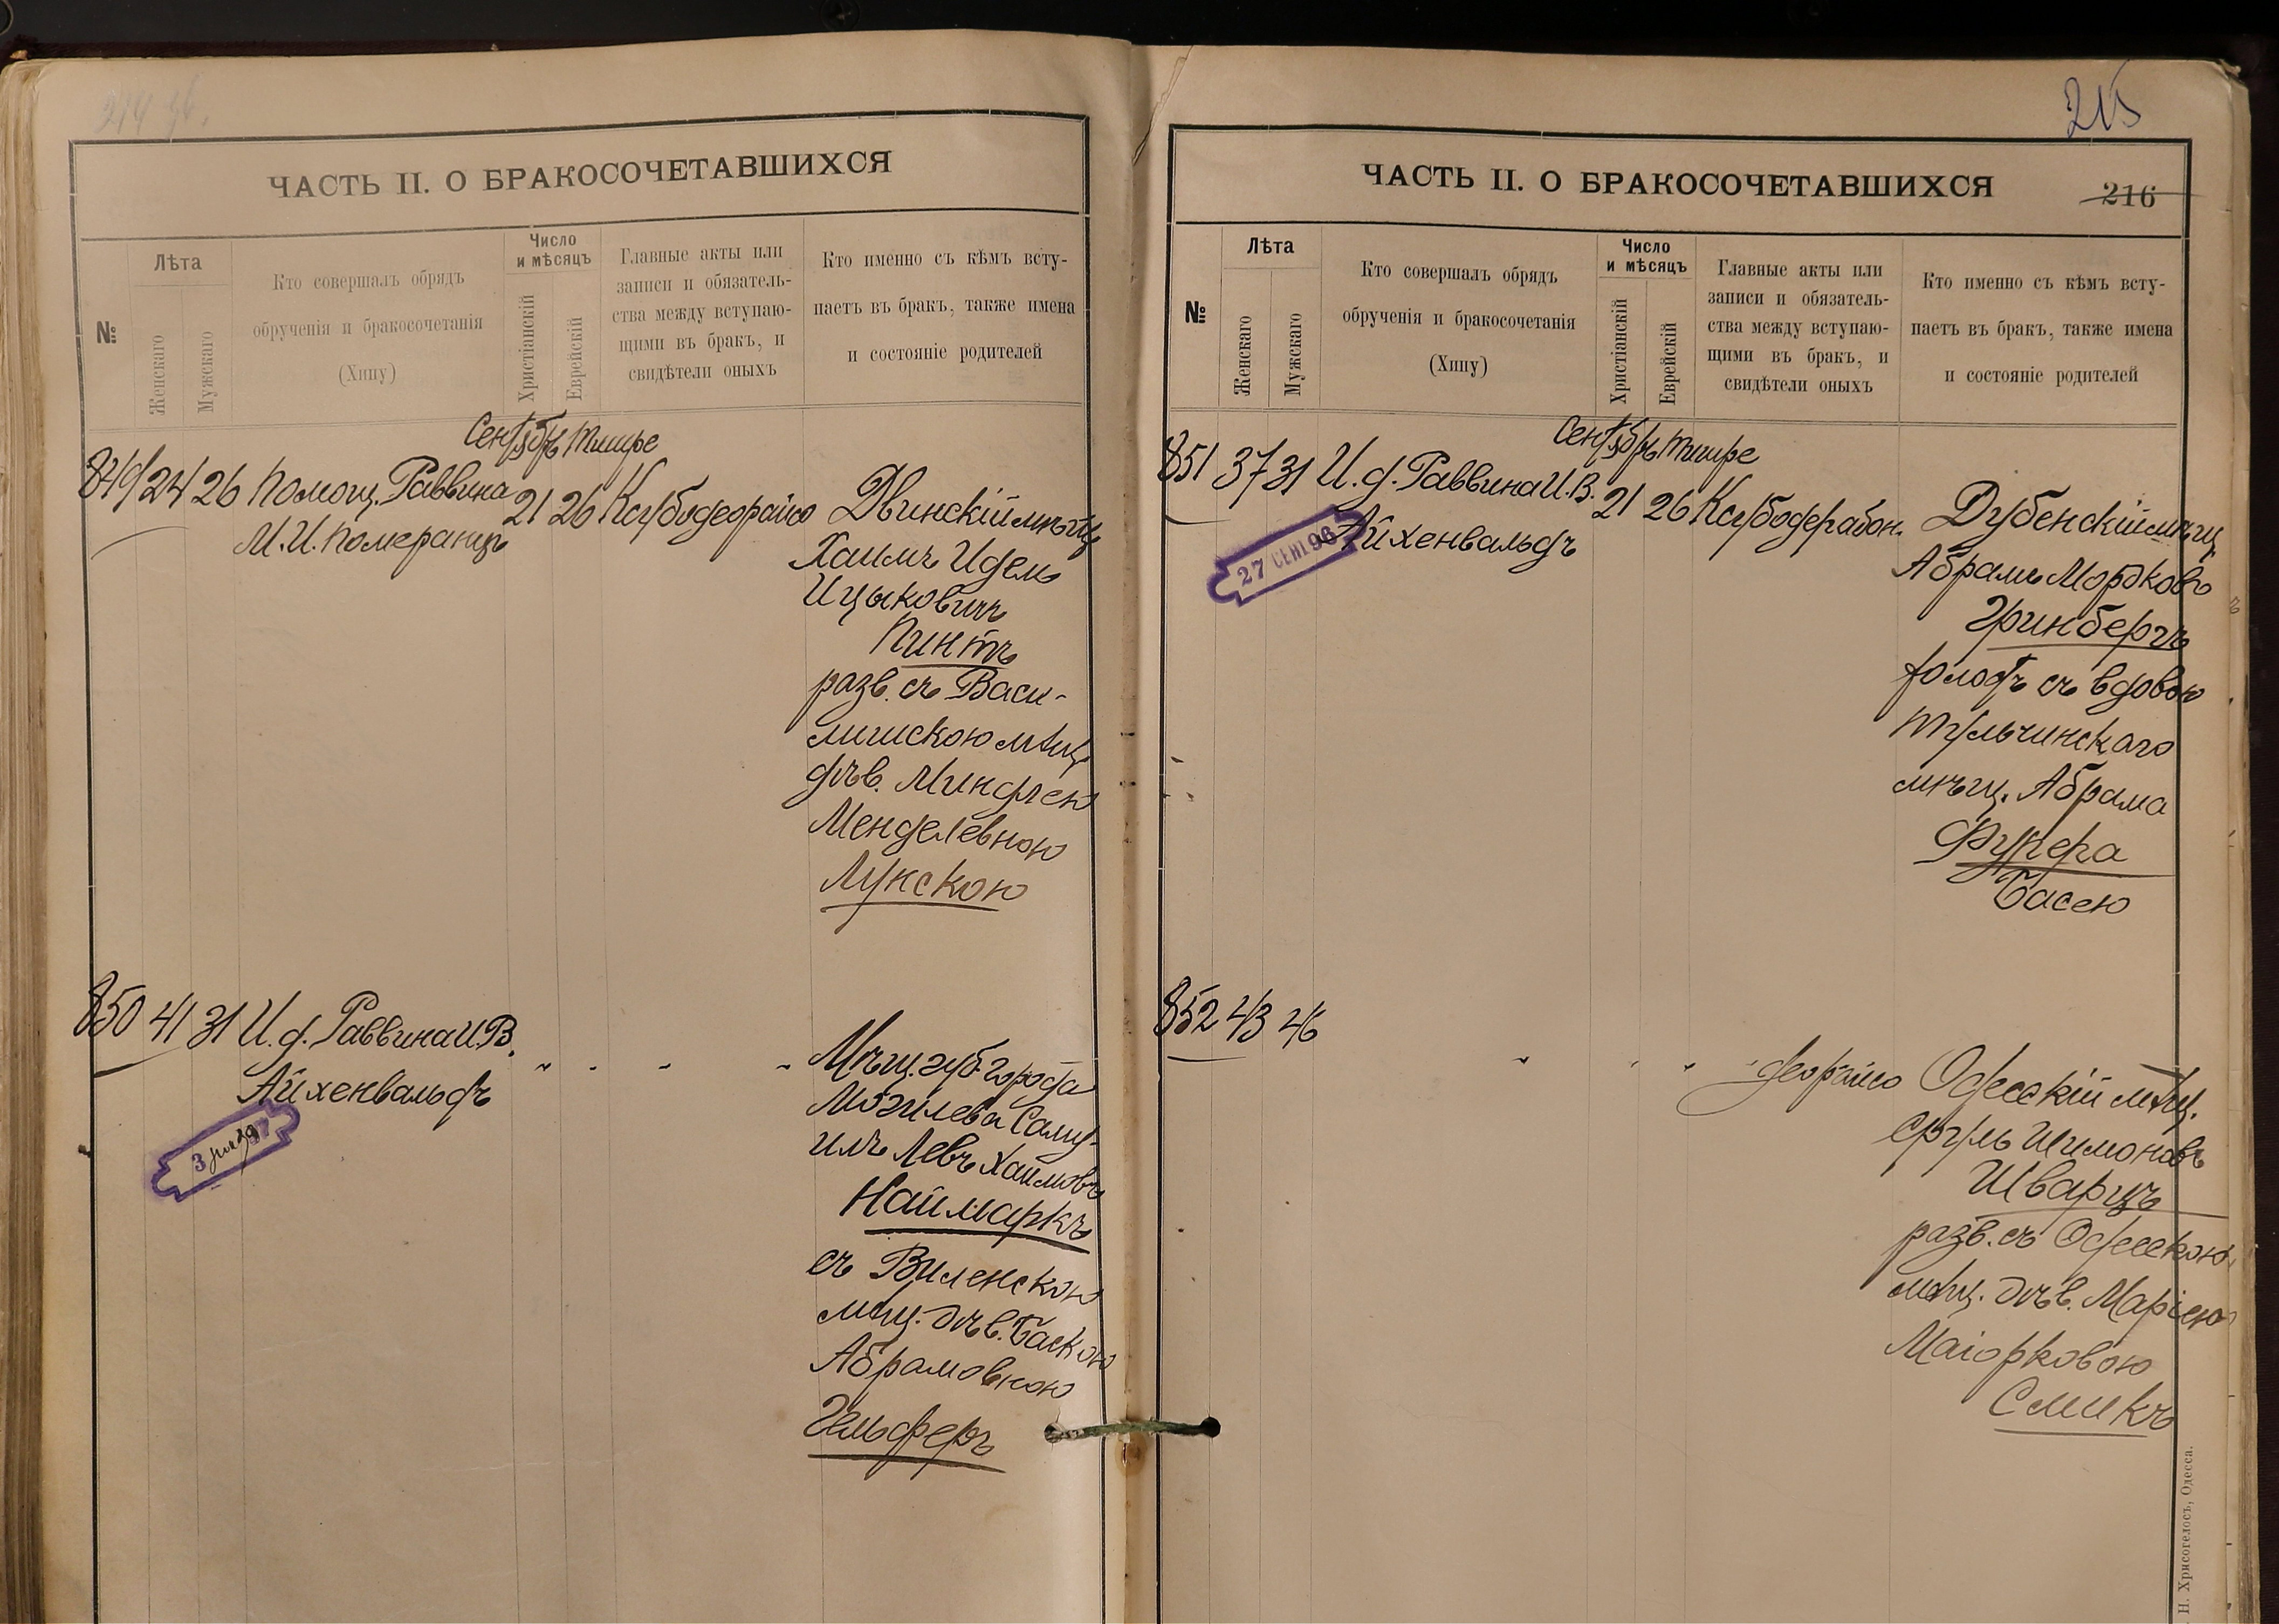 ЧАСТЬ II. О БРАКОСОЧЕТАВШИХСЯ
№
Лѣта
Женскаго
Мужскаго
Кто совершалъ обрядъ
обрученія и бракосочетанія
(Хипу)
Число
и мѣсяцъ
Христіанскій
Еврейскій
Главные акты или
записи и обязатель-
ства между вступаю-
щими въ бракъ, и
свидѣтели оныхъ
Кто именно съ кѣмъ всту-
паетъ въ бракъ, также имена
и состояніе родителей
Сентябрь Тишре
849 24 26 Помощ. Раввина 21 26 Двинскій мѣщ
М. И. Померанцъ
Хаимъ Идель
Ицыковичъ
Пинтъ
разв. съ Васи-
лишскою мѣщ
дѣв. Миндлею
Менделевною
Лунскою
850 41 31 И. д. Раввина И. В.
Айхенвальдъ
3
Мѣщ. губ. города
Могилева Саму-
илъ Левъ Хаимовъ
Наймаркъ
съ Виленскою
мѣщ. дѣв. Баскою
Абрамовною
Гельферъ
215
ЧАСТЬ II. О БРАКОСОЧЕТАВШИХСЯ
216
№
Лѣта
Женскаго
Мужскаго
Кто совершалъ обрядъ
обрученія и бракосочетанія
(Хипу)
Число
и мѣсяцъ
Христіанскій
Еврейскій
Главные акты или
записи и обязатель-
ства между вступаю-
щими въ бракъ, и
свидѣтели оныхъ
Кто именно съ кѣмъ всту-
паетъ въ бракъ, также имена
и состояніе родителей
Сентябрь Тишре
851 37 31 И. д. Раввина И. В. 21 26 Дубенскій мѣщ
Айхенвальдъ
27 СЕНТ 96
Абрамъ Мордковъ
Гринбергъ
холостъ съ вдовою
Тульчинскаго
мѣщ. Абрама
Фукера
Басею
852 43 46
деорайсо Одесскій мѣщ.
Сруль Шимоновъ
Шварцъ
разв. съ Одесскою
мѣщ. дѣв. Маріею
Маіорковою
Смикъ
Н. Хрисогелосъ, Одесса.